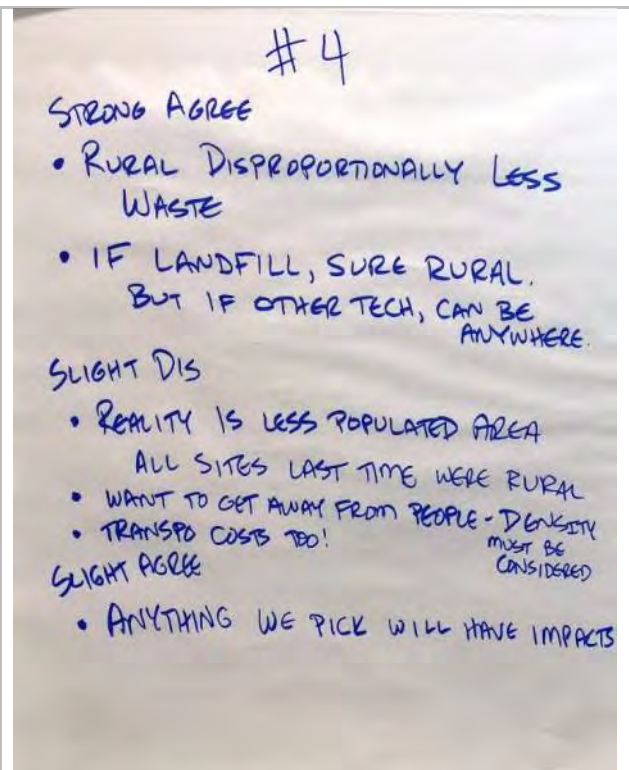 #4
STRONG AGREE
• RURAL DISPROPORTIONALLY LESS
WASTE
• IF LANDFILL, SURE RURAL.
BUT IF OTHER TECH, CAN BE
ANYWHERE.
SLIGHT DIS
• REALITY IS LESS POPULATED AREA
ALL SITES LAST TIME WERE RURAL
• WANT TO GET AWAY FROM PEOPLE - DENSITY
MUST BE
CONSIDERED
• TRANSPO COSTS TOO!
SLIGHT AGREE
• ANYTHING WE PICK WILL HAVE IMPACTS